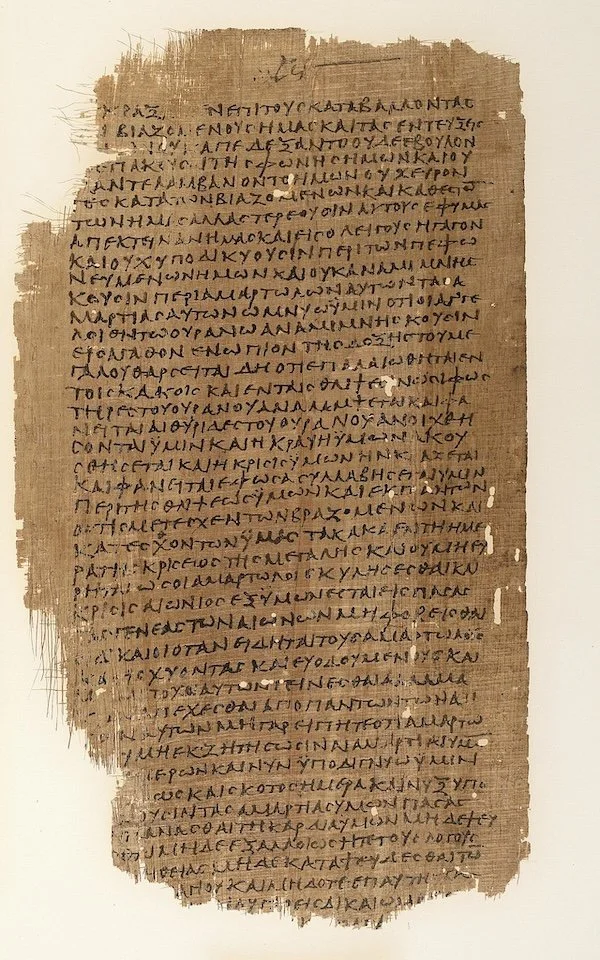 ΥΡΑΞ ΝΕΠΙΤΟΥϹΚΑΤΑΒΑΛΛΟΝΤΑϹ
ΒΙΑΖΟΜΕΝΟΥϹΗΜΑϹΚΑΙΤΑϹΕΝΤΕΥΞΕΙϹ
ΑΠΕΔΕΞΑΝΤΟΟΥΔΕΕΒΟΥΛΟΝ
ΕΠΑΚΟΥϹ ΙΤΗϹΦΩΝΗϹΗΜΩΝΚΑΙΟΥ
ΑΝΤΕΛΑΜΒΑΝΟΝΤΟΗΜΩΝΟΥΧΕΥΡΟΝ
ΤΕϹΚΑΤΑΤΩΝΒΙΑΖΟΜΕΝΩΝΚΑΙΚΑΤΕϹΘΙΟ
ΤΩΝΗΜΑϹΑΛΛΑϹΤΕΡΕΟΥϹΙΝΑΥΤΟΥϹΕΦΥΜΑϹ
ΑΠΕΚΤΕΙΝΑΝΗΜΑϹΚΑΙΕΙϹΟΛΕΙΓΟΥϹΗΓΑΓΟΝ
ΚΑΙΟΥΧΥΠΟΔΙΚΥΟΥϹΙΝΠΕΡΙΤΩΝΠΕΦΟ
ΝΕΥΜΕΝΩΝΗΜΩΝΚΑΙΟΥΚΑΝΑΜΙΜΝΗϹ
ΚΟΥϹΙΝΠΕΡΙΑΜΑΡΤΩΛΩΝΑΥΤΩΝΤΑϹΑ
ΜΑΡΤΙΑϹΑΥΤΩΝΟΜΝΥΩΫΜΙΝΟΤΙΟΙΑΓΓΕ
ΛΟΙΕΝΤΩΟΥΡΑΝΩΑΝΑΜΙΜΝΗϹΚΟΥϹΙΝ
ΕΙϹΑΓΑΘΟΝΕΝΩΠΙΟΝΤΗϹΔΟΞΗϹΤΟΥΜΕ
ΓΑΛΟΥΘΑΡϹΕΙΤΑΙΔΗΟΤΙΕΠΑΛΑΙΩΘΗΤΑΙΕΝ
ΤΟΙϹΚΑΚΟΙϹΚΑΙΕΝΤΑΙϹΘΛΙΨΕϹΙΝΩϹΙΦΩϹ
ΤΗΡΕϹΤΟΥΟΥΡΑΝΟΥΑΝΑΛΑΜΨΕΤΑΙΚΑΙΦΑ
ΝΕΙΤΑΙΑΙΘΥΡΙΔΕϹΤΟΥΟΥΡΑΝΟΥΑΝΟΙΧΘΗ
ϹΟΝΤΑΙΫΜΙΝΚΑΙΗΚΡΑΥΗΫΜΩΝΑΚΟΥ
ϹΘΗϹΕΤΑΙΚΑΙΗΚΡΙϹΙϹΫΜΩΝΗΝΚΡΑΖΕΤΑΙ
ΚΑΙΦΑΝΕΙΤΑΙΕΦΟϹΑϹΥΛΛΑΒΗϹΕΤΑΙΥΜΙΝ
ΠΕΡΙΤΗϹΘΛΙΨΕΩϹΫΜΩΝΚΑΙΕΚΠΑΝΤΩΝ
ΟϹΤΙϹΜΕΤΕϹΧΕΝΤΩΝΒΙΑΖΟΜΕΝΩΝΚΑΙ
ΚΑΤΕϹΧΟΝΤΩΝΫΜΑϹΤΑΚΑΚΑΕΝΤΗΗΜΕ
ΡΑΤΗϹΚΡΙϹΕΩϹΤΗϹΜΕΓΑΛΗϹΚΑΙΟΥΜΗΕΥ
ΡΗΤΑΙΩϹΟΙΑΜΑΡΤΩΛΟΙϹΚΥΛΗϹΕϹΘΑΙΚΑΙ
ΚΡΙϹΙϹΑΙΩΝΙΟϹΕΞΥΜΩΝΕϹΤΑΙΕΙϹΠΑϹΑϹ
ΓΕΝΕΑϹΤΩΝΑΙΩΝΩΝΜΗΦΟΒΕΙϹΘΑΙ
ΔΙΚΑΙΟΙΟΤΑΝΕΙΔΗΤΑΙΤΟΥϹΑΜΑΡΤΩΛΟΥϹ
ϹΧΥΟΝΤΑϹΚΑΙΕΥΟΔΟΥΜΕΝΟΥϹΚΑΙ
ΤΟΧΟΙΑΥΤΩΝΓΕΙΝΕϹΘΑΙΑΛΛΑΜΑ
ΑΠΕΧΕϹΘΑΙΑΠΟΠΑΝΤΩΝΤΩΝΑΔΙ
ΑΥΤΩΝΜΗΓΑΡΕΙΠΗΤΕΟΤΙΑΜΑΡΤΩ
ΥΜΗΕΚΖΗΤΗϹΩϹΙΝΑΙΑΜΑΡΤΙΑΙΥΜΩ
ΜΕΡΩΝΚΑΙΝΥΝΫΠΟΔΙΓΝΥΩΫΜΙΝ
ΦΩϹΚΑΙϹΚΟΤΟϹΗΜΕΡΑΚΑΙΝΥΞΥΠΟ
ΟΥϹΙΝΤΑϹΑΜΑΡΤΙΑϹΥΜΩΝΠΑϹΑϹ
ΠΛΑΝΑϹΘΑΙΤΗΚΑΡΔΙΑΥΜΩΝΜΗΔΕΨΕΥ
ΜΗΔΕΕΞΑΛΛΟΙΩϹΗΤΕΤΟΥϹΛΟΓΟΥϹ
ΘΕΙΑϹΜΗΔΕΚΑΤΑΨΕΥΔΕϹΘΑΙΤΩ
ΓΙΟΥΚΑΙΜΗΔΟΤΕΕΠΑΥΤΗ